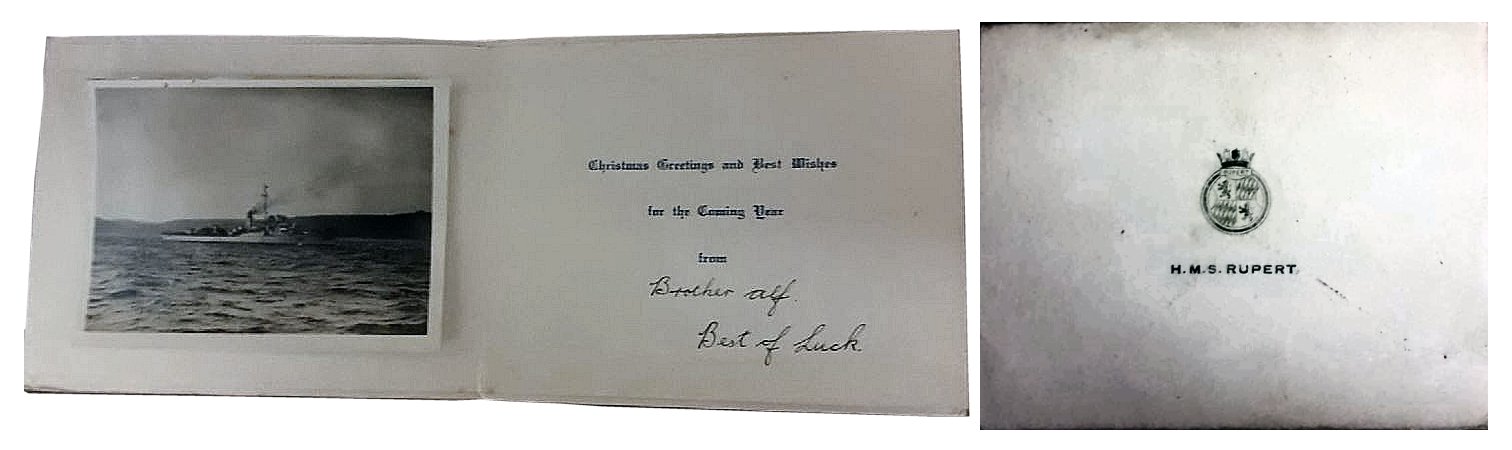 Christmas Greetings and Best Wishes
for the Coming Year
from
Brother alf.
Best of Luck.
RUPERT
H.M.S. RUPERT